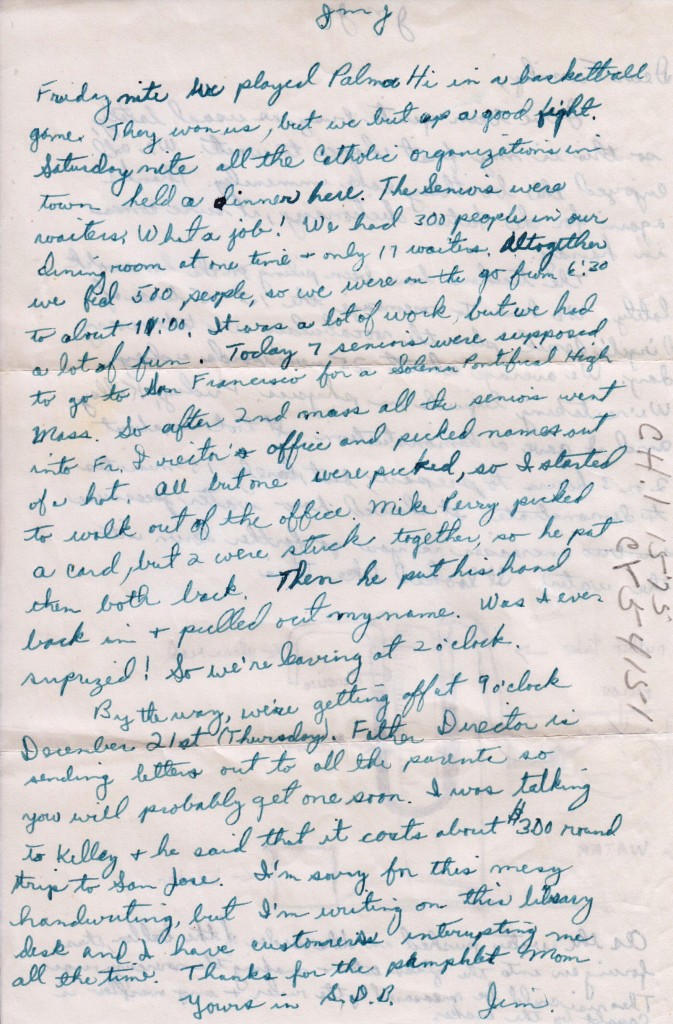 J m J
Friday nite we played Palma Hi in a basketball
game. They won us, but we but up a good fight.
Saturday nite all the Catholic organizations in
town held a dinner here. The Seniors were
waiters. What a job! We had 300 people in our
diningroom at one time + only 17 waiters. Altogether
we fed 500 people, so we were on the go from 6:30
to about 11:00. It was a lot of work, but we had
a lot of fun. Today 7 seniors were supposed
to go to San Francisco for a Solemn Pontifical High
Mass. So after 2nd mass all the seniors went
into Fr. Director's office and picked names out
of a hat. All but one were picked, so I started
to walk out of the office. Mike Perry picked
a card, but 2 were stuck together, so he put
then both back. Then he put his hand
back in + pulled out my name. Was I ever
suprized! So we're leaving at 2 o'clock.
By the way, we're getting off at 9 o'clock
December 21st (Thursday). Father Director is
sending letters out to all the parents so
you will probably get one soon. I was talking
to Kelley + he said that it costs about $3.00 round
trip to San Jose. I'm sorry for this mesy
handwriting, but I'm writing on this library
desk and I have customers interrupting me
all the time. Thanks for the pamphlet Mom.
Yours in S.D.B. Jim.
CH. 1-1525
CY-5-4151